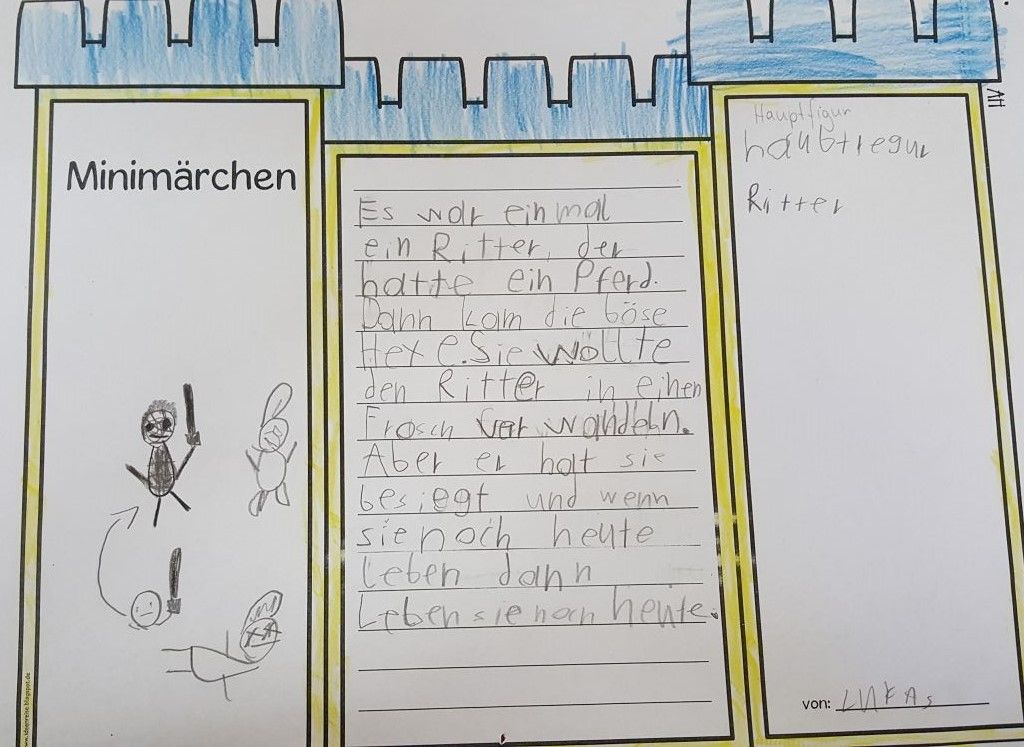 Minimärchen
Es war einmal
ein Ritter, der
hatte ein Pferd.
Dann kam die böse
Hexe. Sie wollte
den Ritter in einen
Frosch verwandeln.
Aber er hat sie
besiegt und wenn
sie noch heute
leben dann
Leben sie noch heute.
Hauptfigur
haubtfegur
Ritter
von: LUKAs
www.ideenreise.blogspot.de